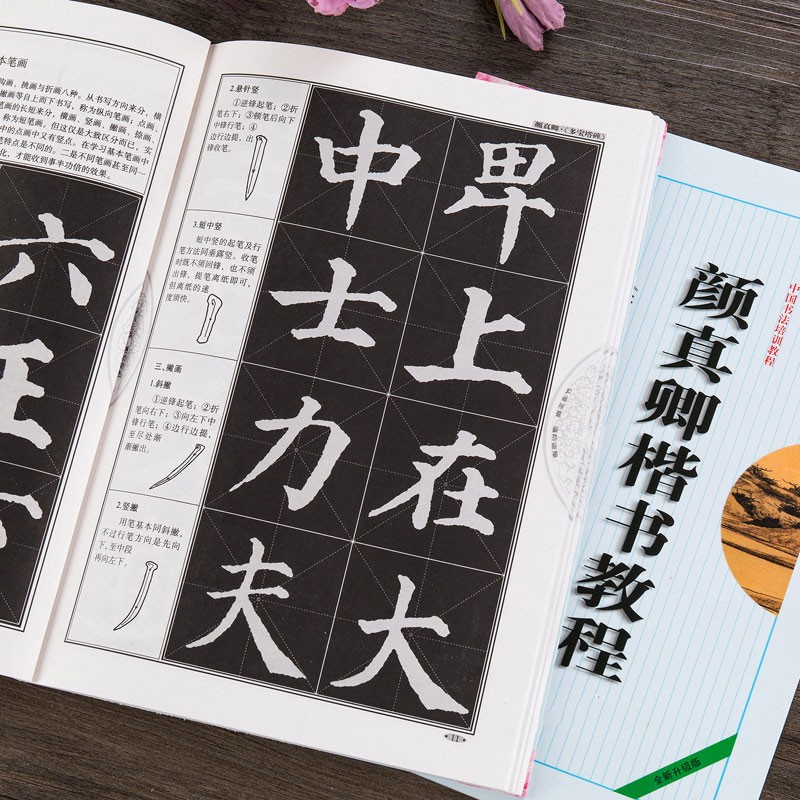 本笔画
钩画、挑画与折画八种。从书写方向来分，横
撇画等自上而下书写，称为纵向笔画；点画、
笔画的长短来分，横画、竖画、撇画、捺画
，称为短笔画。但这仅是大致区分而已，实
中的点画中又有竖点。在学习基本笔画中
笔特点是不同的。二是不同笔画甚至同一
化，才能收到事半功倍的效果。
六
王
颜真卿·《多宝塔碑》
2.悬针竖
①逆锋起笔；②折
笔右下；③顿笔后向下
中锋行笔；④
边行边提，出
锋收笔。
中 卑
3.短中竖
短中竖的起笔及行
笔方法同垂露竖。收笔
时既不须回锋，也不须
出锋，提笔离纸即可，
但离纸的速
度须快。
士 上
三、撇画
1.斜撇
①逆锋起笔；②折
笔向右下；③向左下中
锋行笔；④边行边提，
至尽处渐
渐撇出。
力 在
2.竖撇
用笔基本同斜撇，
不过行笔方向是先向
下，至中段
再向左下。
夫 大
11
中国书法培训教程
颜真卿楷书教程
全新升级版